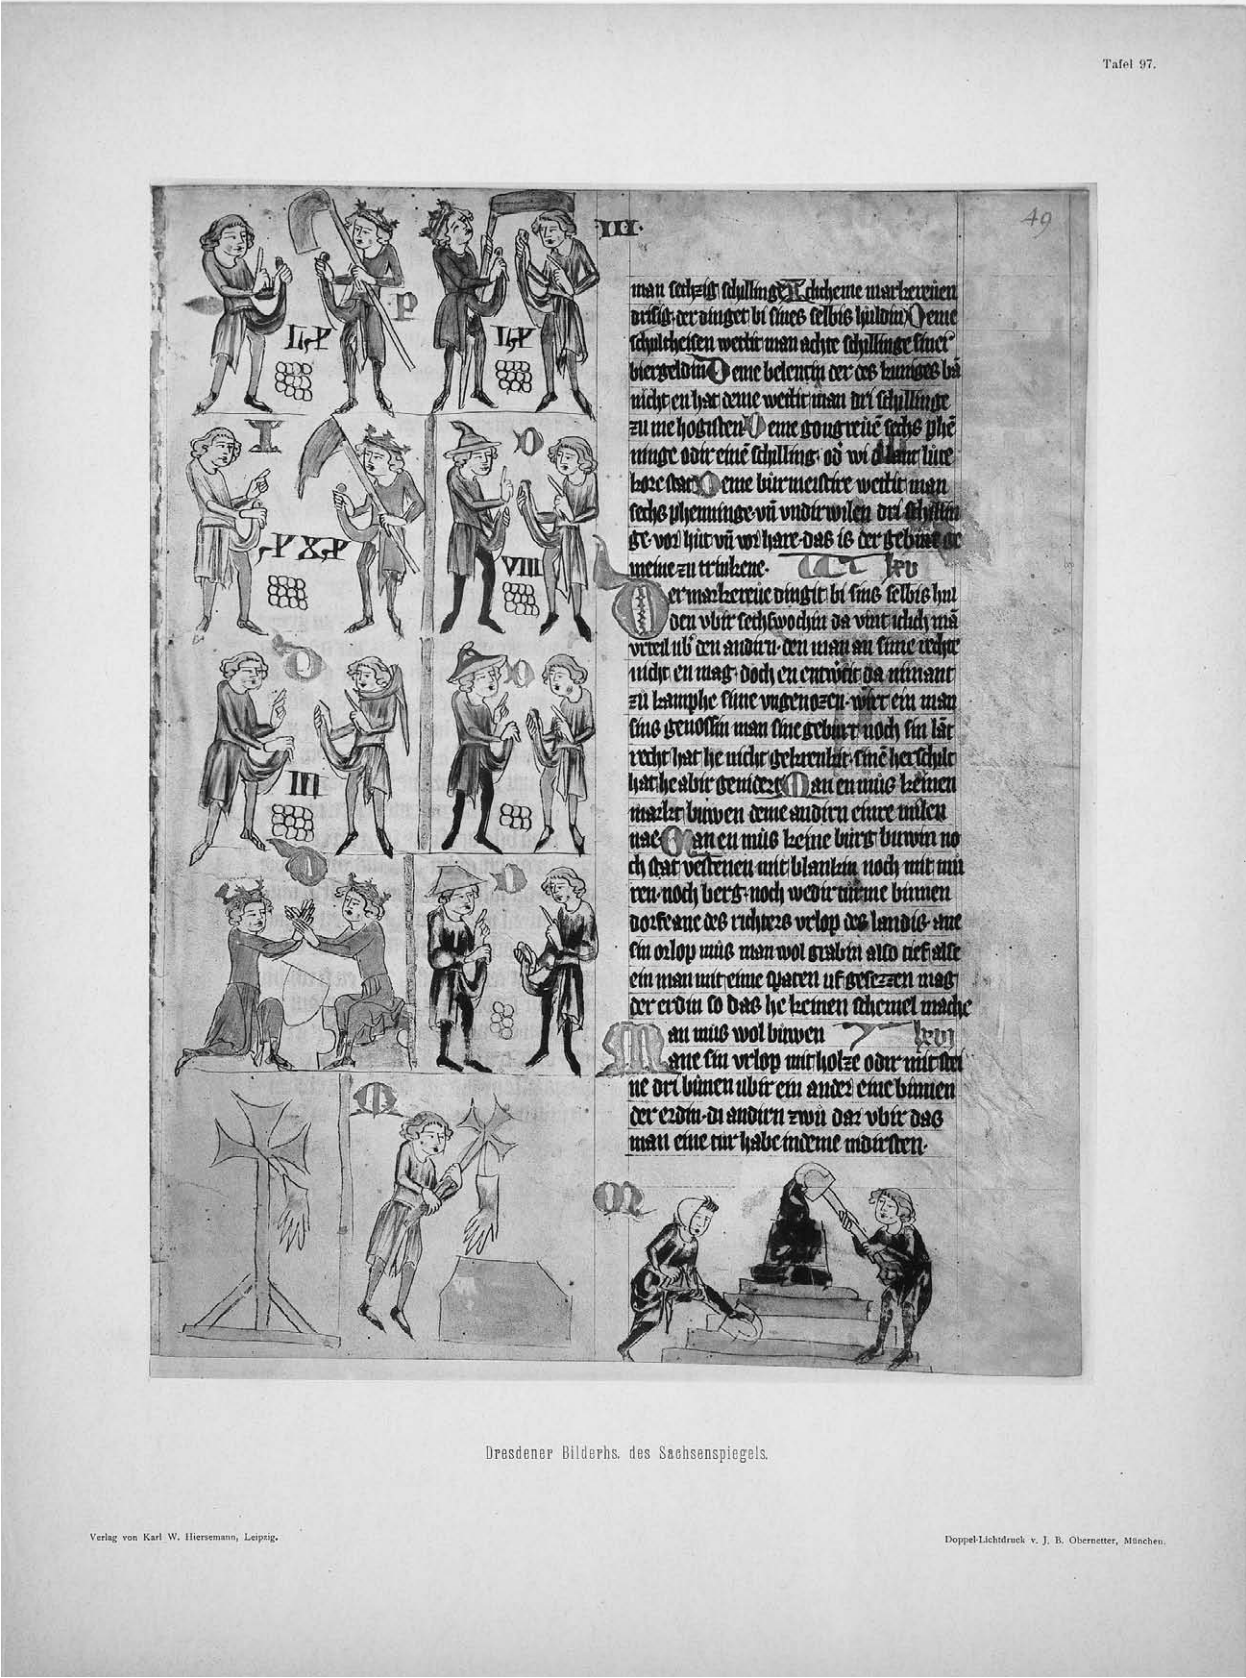 Tafel 97.
49
III.
man sechzig schillinge Ichcheme markreuen
drisig der dinget bi sines selbis huldin Deme
schultheisen wettit man achte schillinge siner
biergeldin Deme belentin der des kuniges bā
nicht en hat deme wettit man dri schillinge
zu me hogisten Deme gougreuē sechs phē
ninge odir einē schilling od wi lantlute
kore stat Deme burmeistere wettit man
sechs phenninge vn̄ vndirwilen dri schillin
ge vor hut vn̄ vor hare das is der gebure ge
meine zu trinkene. lxv
Der markreue dingit bi sins selbis hul
den vbir sechs wochin da vint iclich mā
vrteil ub' den andirn den man an sime rechte
nicht en mag doch en entwert da nimant
zu kamphe sime vngenozen wirt ein man
sins genossin man sine geburt noch sin lāt
recht hat he nicht gekrenkit sinē herschilt
hat he abir genidert Man en mus keinen
markt buwen deme andirn einre milen
nae Man en mus keine burg buwin no
ch stat vestenen mit blankin noch mit mu
ren noch berg noch wedir turme binnen
dorfe ane des richters vrlop des landis ane
sin orlop mus man wol grabin also tief alse
ein man mit eime spaten uf geschizzen mag
der erdin so das he keinen schemel mache
Man mus wol buwen lxvi
ane sin vrlop mit holze odir mit stei
ne dri bunen ubir ein ander eine binnen
der erdin di andirn zwu dar vbir das
man eine tur habe indeme nidirsten.
II P
P
II P
I
P X P
D
VIII
D
III
D
D
D
M
M
Dresdener Bilderhs. des Sachsenspiegels.
Verlag von Karl W. Hiersemann, Leipzig.
Doppel-Lichtdruck v. J. B. Obernetter, München.